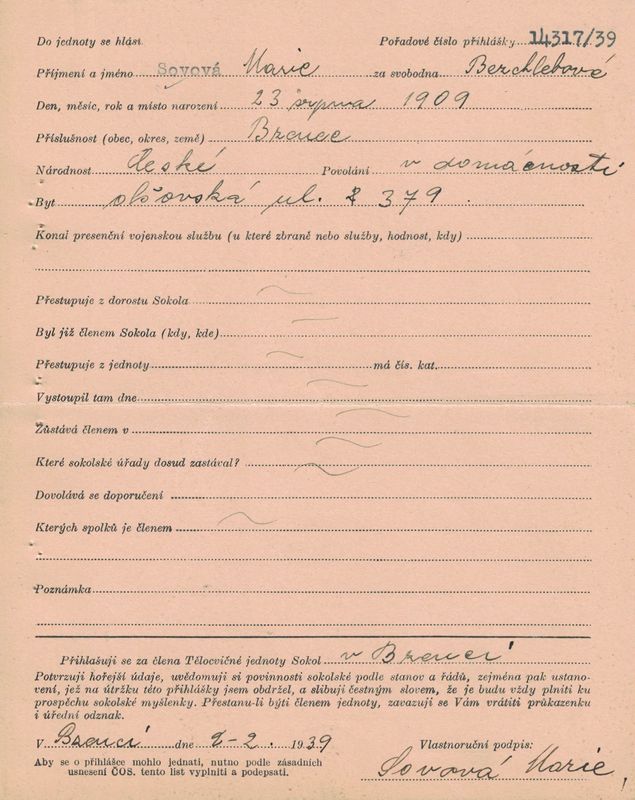 Do jednoty se hlásí Pořadové číslo přihlášky 14317/39
Příjmení a jméno Sovová Marie za svobodna Bezchlebová
Den, měsíc, rok a místo narození 23 srpna 1909
Příslušnost (obec, okres, země)
Národnost české Povolání v domácnosti
Byt olšovská ul. č 379.
Konal presenční vojenskou službu (u které zbraně nebo služby, hodnost, kdy)
Přestupuje z dorostu Sokola
Byl již členem Sokola (kdy, kde)
Přestupuje z jednoty má čís. kat.
Vystoupil tam dne
Zůstává členem v
Které sokolské úřady dosud zastával?
Dovolává se doporučení
Kterých spolků je členem
Poznámka
Přihlašuji se za člena Tělocvičné jednoty Sokol v
Potvrzuji hořejší údaje, uvědomuji si povinnosti sokolské podle stanov a řádů, zejména pak ustano-
vení, jež na útržku této přihlášky jsem obdržel, a slibuji čestným slovem, že je budu vždy plniti ku
prospěchu sokolské myšlenky. Přestanu-li býti členem jednoty, zavazuji se Vám vrátiti průkazenku
i úřední odznak.
V dne 2-2. 1939 Vlastnoruční podpis:
Aby se o přihlášce mohlo jednati, nutno podle zásadních
usnesení ČOS. tento list vyplniti a podepsati.
Sovová Marie